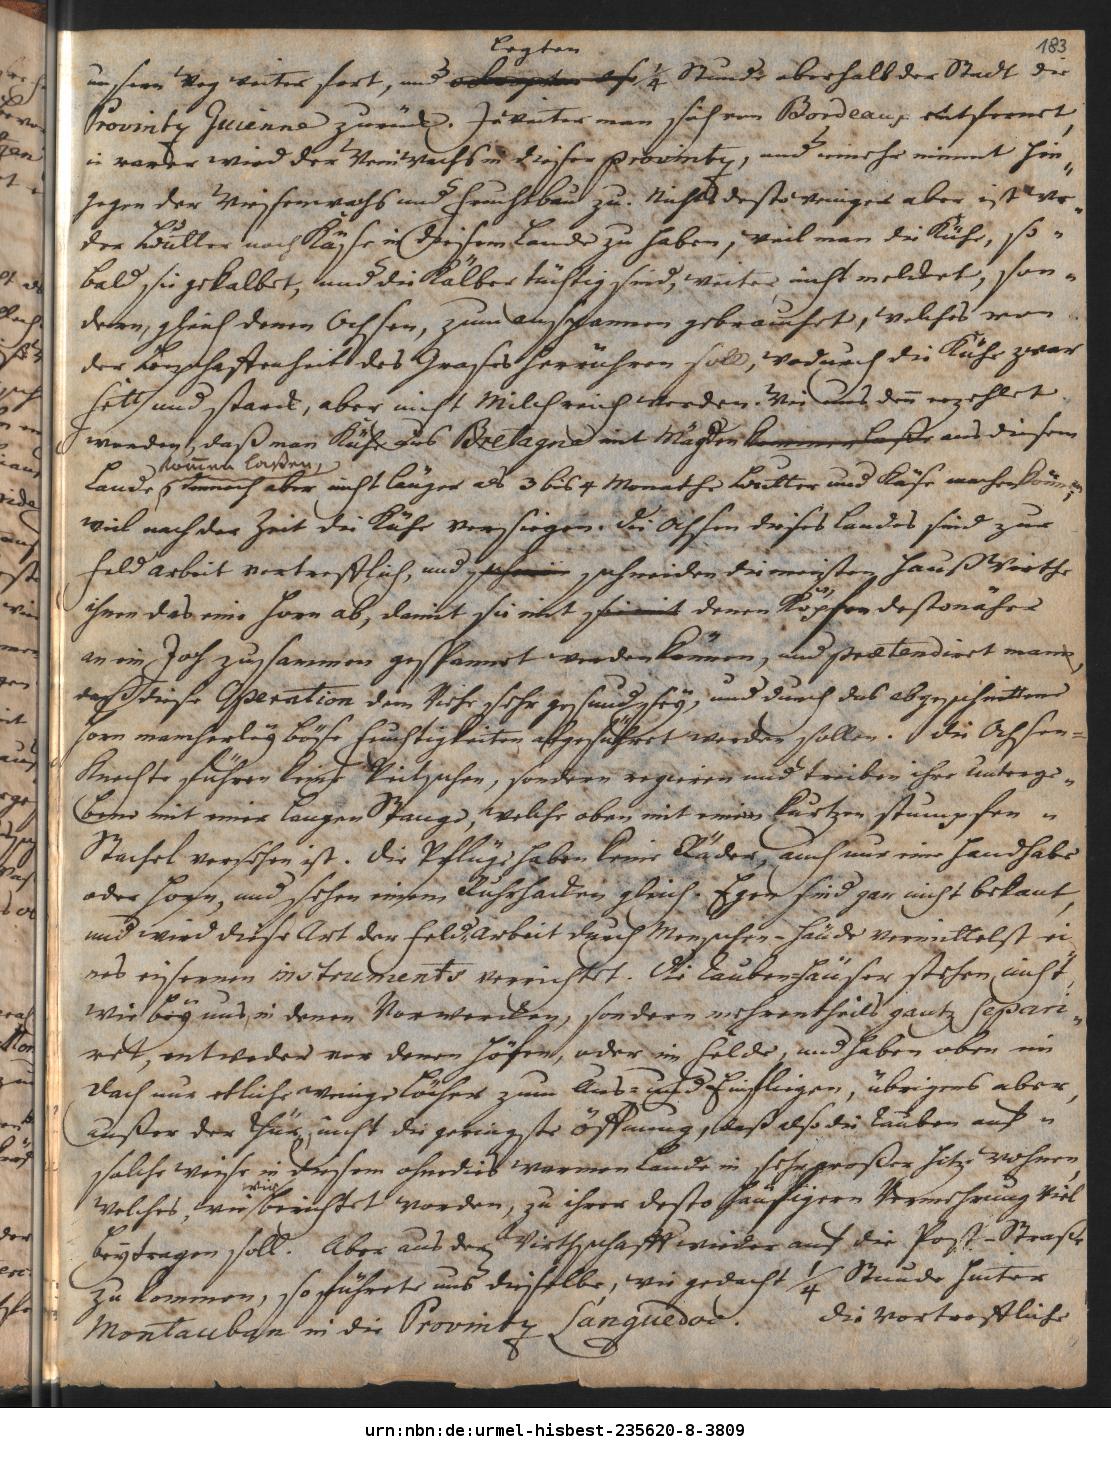 183
legten
unsern Weg weiter fort, und 1/4 Stunde oberhalb der Stadt die
Provintz Guienne zurück. Je weiter man sich von Bordeaux entfernet,
je rarer wird der Weinwachs in dieser Provintz, und nimmt hin„
gegen der Wiesenwachs und Fruchtbau zu. Nichts destoweniger aber ist we„
der Butter noch Käse in diesem Lande zu haben, weil man die Kühe, so„
bald sie gekalbet, und die Kälber tüchtig sind, weiter nicht melcket, son„
dern, gleich denen Ochsen, zum anspannen gebrauchet, welches von
der Beschaffenheit des Grases herrühren soll, wodurch die Kühe zwar
fett und starck, aber nicht Milchreich werden. Wie uns denn erzehlet
worden, daß man Kühe aus Bretagne mit Mägden kommen laße aus diesem
kommen laßen,
Lande, dennoch aber nicht länger als 3 bis 4 Monathe Butter und Käse machen können,
weil nach der Zeit die Kühe versiegen. Die Ochsen dieses Landes sind zur
Feld arbeit vortrefflich, und schneiden die meisten Hauß Wirthe
ihnen das eine Horn ab, damit sie mit denen Köpfen desto näher
an ein Joch zusammen gespannet werden können, und praetendiret man,
daß diese Operation dem Viehe sehr gesund sey, und durch das abgeschnittene
Horn mancherley böse Feuchtigkeiten abgeführet werden sollen. Die Ochsen=
Knechte führen keine Peitschen, sondern regieren und treiben ihre Unterge„
bene mit einer langen Stange, welche oben mit einem kurtzen stumpfen „
Stachel versehen ist. Die Pflüge haben keine Räder, auch nur eine Handhabe
oder Horn, und sehen einem Ruhrhacken gleich. Egen sind gar nicht bekant,
und wird diese Art der Feld Arbeit durch Menschen-Hände vermittelst ei
nes eisernen instruments verrichtet. Die Tauben-Häuser stehen nicht,
wie bey uns, in denen Vorwercken, sondern mehrentheils gantz separi„
ret, entweder vor denen Höfen, oder im Felde, und haben oben im
Dach nur etliche wenige Löcher zum Aus= und Einfliegen, übrigens aber,
außer der Thür, nicht die geringste Öffnung, daß also die Tauben auf „
solche weise in diesem ohnedies warmen Lande in sehr großer Hitze wohnen,
wir
welches, wie berichtet worden, zu ihrer desto häufigern Vermehrung viel
beytragen soll. Aber aus der Wirthschafft wieder auf die Post-Straße
zu kommen, so führete uns dieselbe, wie gedacht 1/4 Stunde hinter
Montauban in die Provintz Languedoc. Die vortreffliche
urn:nbn:de:urmel-hisbest-235620-8-3809